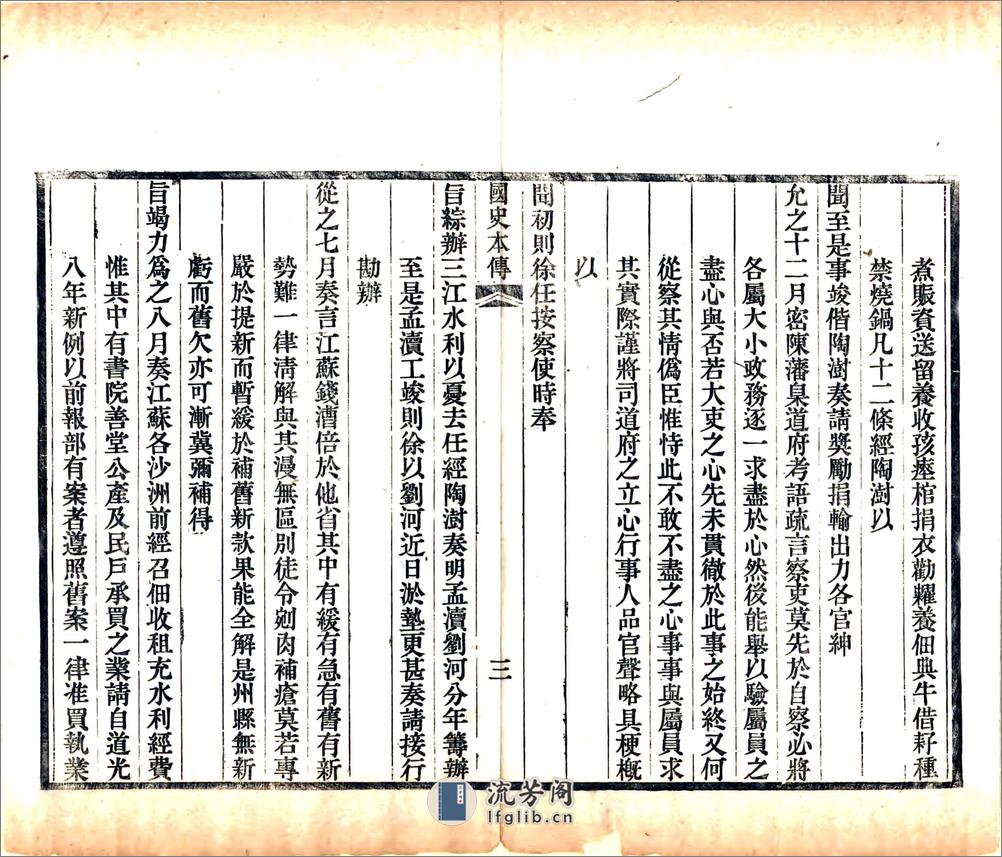 煮賑資送留養收孩瘞棺捐衣勸糶養佃典牛借籽種
禁燒鍋凡十二條經陶澍以
聞至是事竣偕陶澍奏請獎勵捐輸出力各官紳
允之十二月密陳藩臬道府考語疏言察吏莫先於自察必將
各屬大小政務逐一求盡於心然後能舉以驗屬員之
盡心與否若大吏之心先未貫徹於此事之始終又何
從察其情僞臣惟恃此不敢不盡之心事事與屬員求
其實際謹將司道府之立心行事人品官聲略具梗槪
以
聞初則徐任按察使時奉
國史本傳
三
旨綜辦三江水利以憂去任經陶澍奏明孟瀆劉河分年籌辦
至是孟瀆工竣則徐以劉河近日淤墊更甚奏請接行
勘辦
從之七月奏言江蘇錢漕倍於他省其中有緩有急有舊有新
勢難一律淸解與其漫無區別徒令剜肉補瘡莫若專
嚴於提新而暫緩於補舊新款果能全解是州縣無新
虧而舊欠亦可漸冀彌補得
旨竭力爲之八月奏江蘇各沙洲前經召佃收租充水利經費
惟其中有書院善堂公產及民戶承買之業請自道光
八年新例以前報部有案者遵照舊案一律准買執業
流芳阁
lfglib.cn